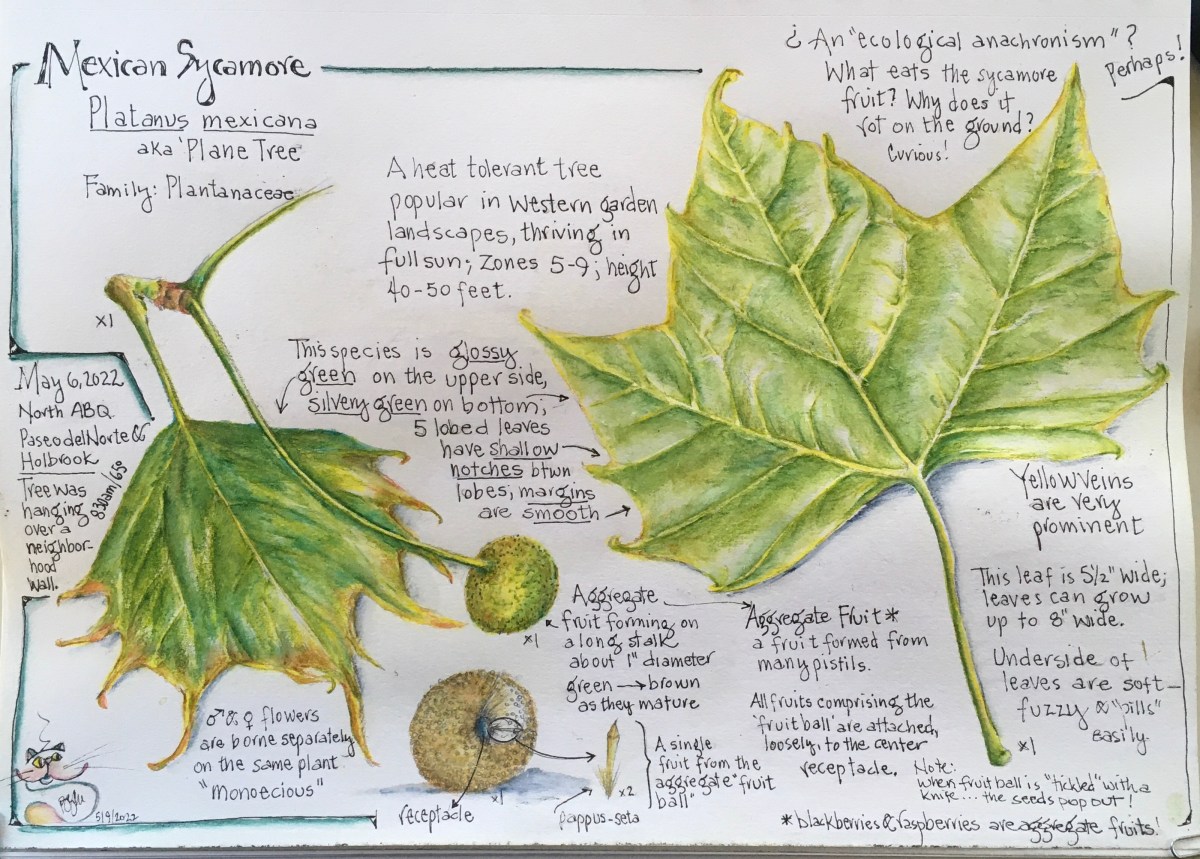 Mexican Sycamore
Platanus mexicana
aka 'Plane Tree'
Family: Plantanaceae
¿ An "ecological anachronism"?
Perhaps!
What eats the sycamore
fruit? Why does it
rot on the ground?
Curious!
A heat tolerant tree
popular in Western garden
landscapes, thriving in
full sun; Zones 5-9; height
40-50 feet.
x1
This species is glossy
green on the upper side,
silvery green on bottom;
5 lobed leaves
have shallow
notches btwn
lobes; margins
are smooth
May 6, 2022
North ABQ
Paseo del Norte &
Holbrook
830am/65°
Tree was
hanging
over a
neighbor-
hood
wall.
Yellow veins
are very
prominent
This leaf is 5½" wide;
leaves can grow
up to 8" wide.
Underside of
leaves are soft-
fuzzy & "pills"
easily.
x1
x1
Aggregate
fruit forming on
a long stalk
about 1" diameter
green → brown
as they mature
Aggregate Fruit*
a fruit formed from
many pistils.
All fruits comprising the
'fruit ball' are attached,
loosely, to the center
receptacle.
♂ & ♀ flowers
are borne separately
on the same plant
"monoecious"
receptacle
x1
x2
pappus-seta
A single
fruit from the
aggregate "fruit
ball"
Note:
When fruit ball is "tickled" with a
knife... the seeds pop out!
* blackberries & raspberries are aggregate fruits!
5/9/2022